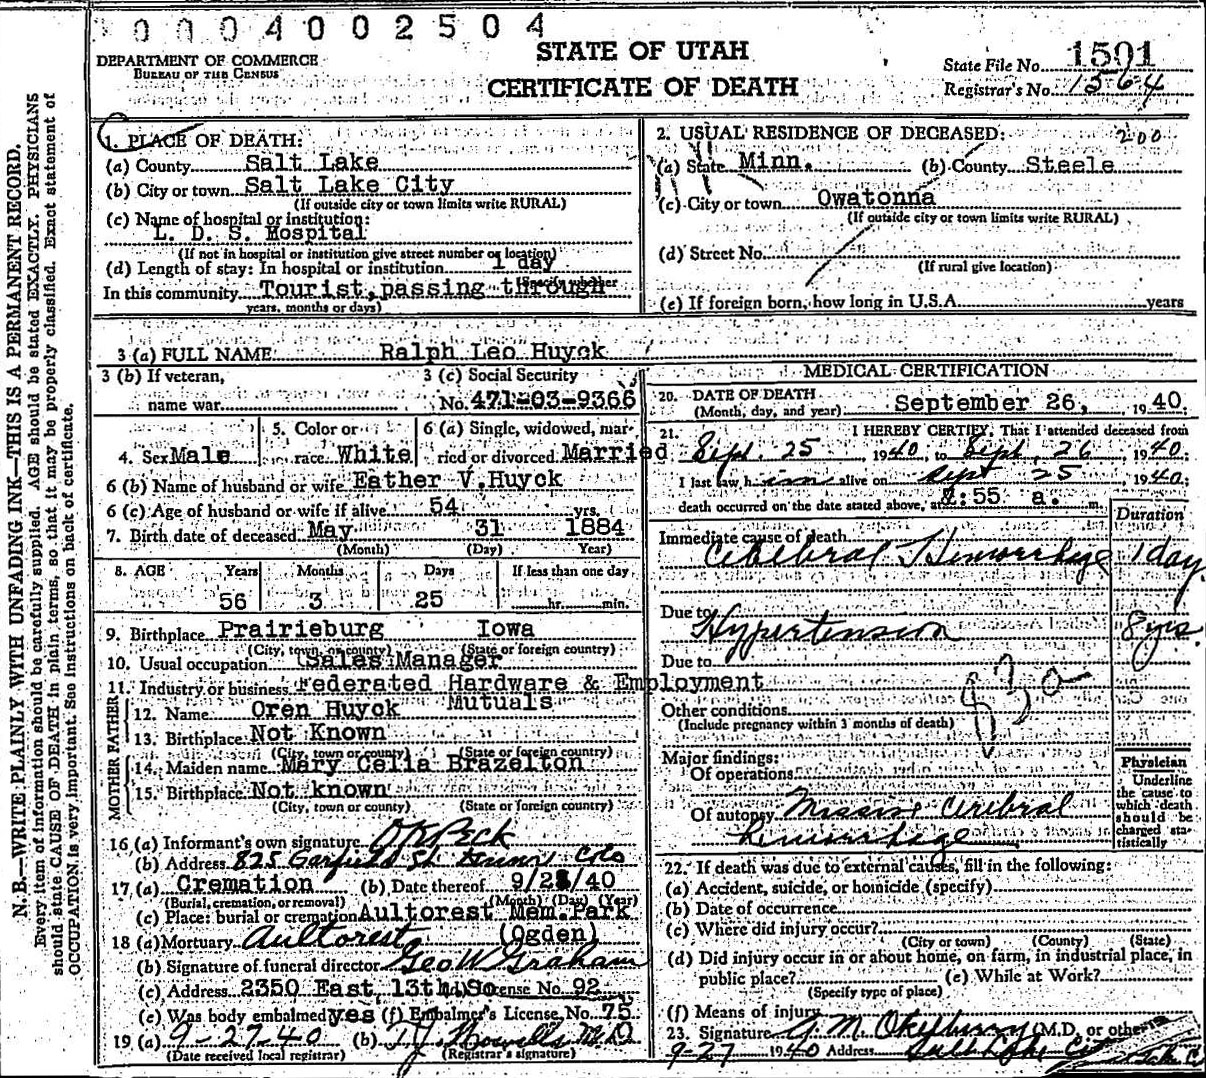 0004002504
DEPARTMENT OF COMMERCE
BUREAU OF THE CENSUS
STATE OF UTAH
CERTIFICATE OF DEATH
State File No. 1591
Registrar's No. 1564
N. B.—WRITE PLAINLY WITH UNFADING INK—THIS IS A PERMANENT RECORD.
Every item of information should be carefully supplied. AGE should be stated EXACTLY. PHYSICIANS
should state CAUSE OF DEATH in plain terms, so that it may be properly classified. Exact statement of
OCCUPATION is very important. See instructions on back of certificate.
1. PLACE OF DEATH:
(a) County Salt Lake
(b) City or town Salt Lake City
(If outside city or town limits write RURAL)
(c) Name of hospital or institution:
L. D. S. Hospital
(If not in hospital or institution give street number or location)
(d) Length of stay: In hospital or institution 1 day
(Specify whether
In this community Tourist, passing through
years, months or days)
2. USUAL RESIDENCE OF DECEASED: 200
(a) State Minn. (b) County Steele
(c) City or town Owatonna
(If outside city or town limits write RURAL)
(d) Street No.
(If rural give location)
(e) If foreign born, how long in U.S.A. years
3 (a) FULL NAME Ralph Leo Huyck
3 (b) If veteran, name war
3 (c) Social Security No. 471-03-9366
4. Sex Male
5. Color or race White
6 (a) Single, widowed, married or divorced Married
6 (b) Name of husband or wife Esther V. Huyck
6 (c) Age of husband or wife if alive 54 yrs.
7. Birth date of deceased May 31 1884
(Month) (Day) Year)
8. AGE Years Months Days If less than one day
56 3 25 hr. min.
9. Birthplace Prairieburg Iowa
(City, town, or county) (State or foreign country)
10. Usual occupation Sales Manager
11. Industry or business Federated Hardware & Employment
Mutuals
FATHER
12. Name Oren Huyck
13. Birthplace Not Known
(City, town or county) (State or foreign country)
MOTHER
14. Maiden name Mary Celia Brazelton
15. Birthplace Not known
(City, town or county) (State or foreign country)
16 (a) Informant's own signature O K Peck
(b) Address 825 Garfield St. Denver Colo
17 (a) Cremation (b) Date thereof 9/28/40
(Burial, cremation, or removal) (Month) (Day) (Year)
(c) Place: burial or cremation Aultorest Mem. Park
(Ogden)
18 (a) Mortuary Aultorest
(b) Signature of funeral director Geo W Graham
(c) Address 2350 East 13th So (d) License No. 92
(e) Was body embalmed yes (f) Embalmer's License No. 75
19 (a) 9-27-40 (b) T. J. Howells M.D
(Date received local registrar) (Registrar's signature)
MEDICAL CERTIFICATION
20. DATE OF DEATH
(Month, day, and year) September 26, 1940.
21. I HEREBY CERTIFY, That I attended deceased from
Sept. 25, 1940, to Sept. 26, 1940.
I last saw him alive on Sept 25, 1940.
death occurred on the date stated above, at :55 a. m.
Duration
Immediate cause of death
Cerebral Hemorrhage 1 day
Due to
Hypertension 8 yrs.
Due to
83a
Other conditions
(Include pregnancy within 3 months of death)
Major findings:
Of operations
Of autopsy Massive Cerebral
hemorrhage
Physician
Underline
the cause to
which death
should be
charged sta-
tistically
22. If death was due to external causes, fill in the following:
(a) Accident, suicide, or homicide (specify)
(b) Date of occurrence
(c) Where did injury occur?
(City or town) (County) (State)
(d) Did injury occur in or about home, on farm, in industrial place, in
public place? (e) While at Work?
(Specify type of place)
(f) Means of injury
23. Signature M. Okelberry (M.D. or other)
9-27 1940 Address Salt Lake City